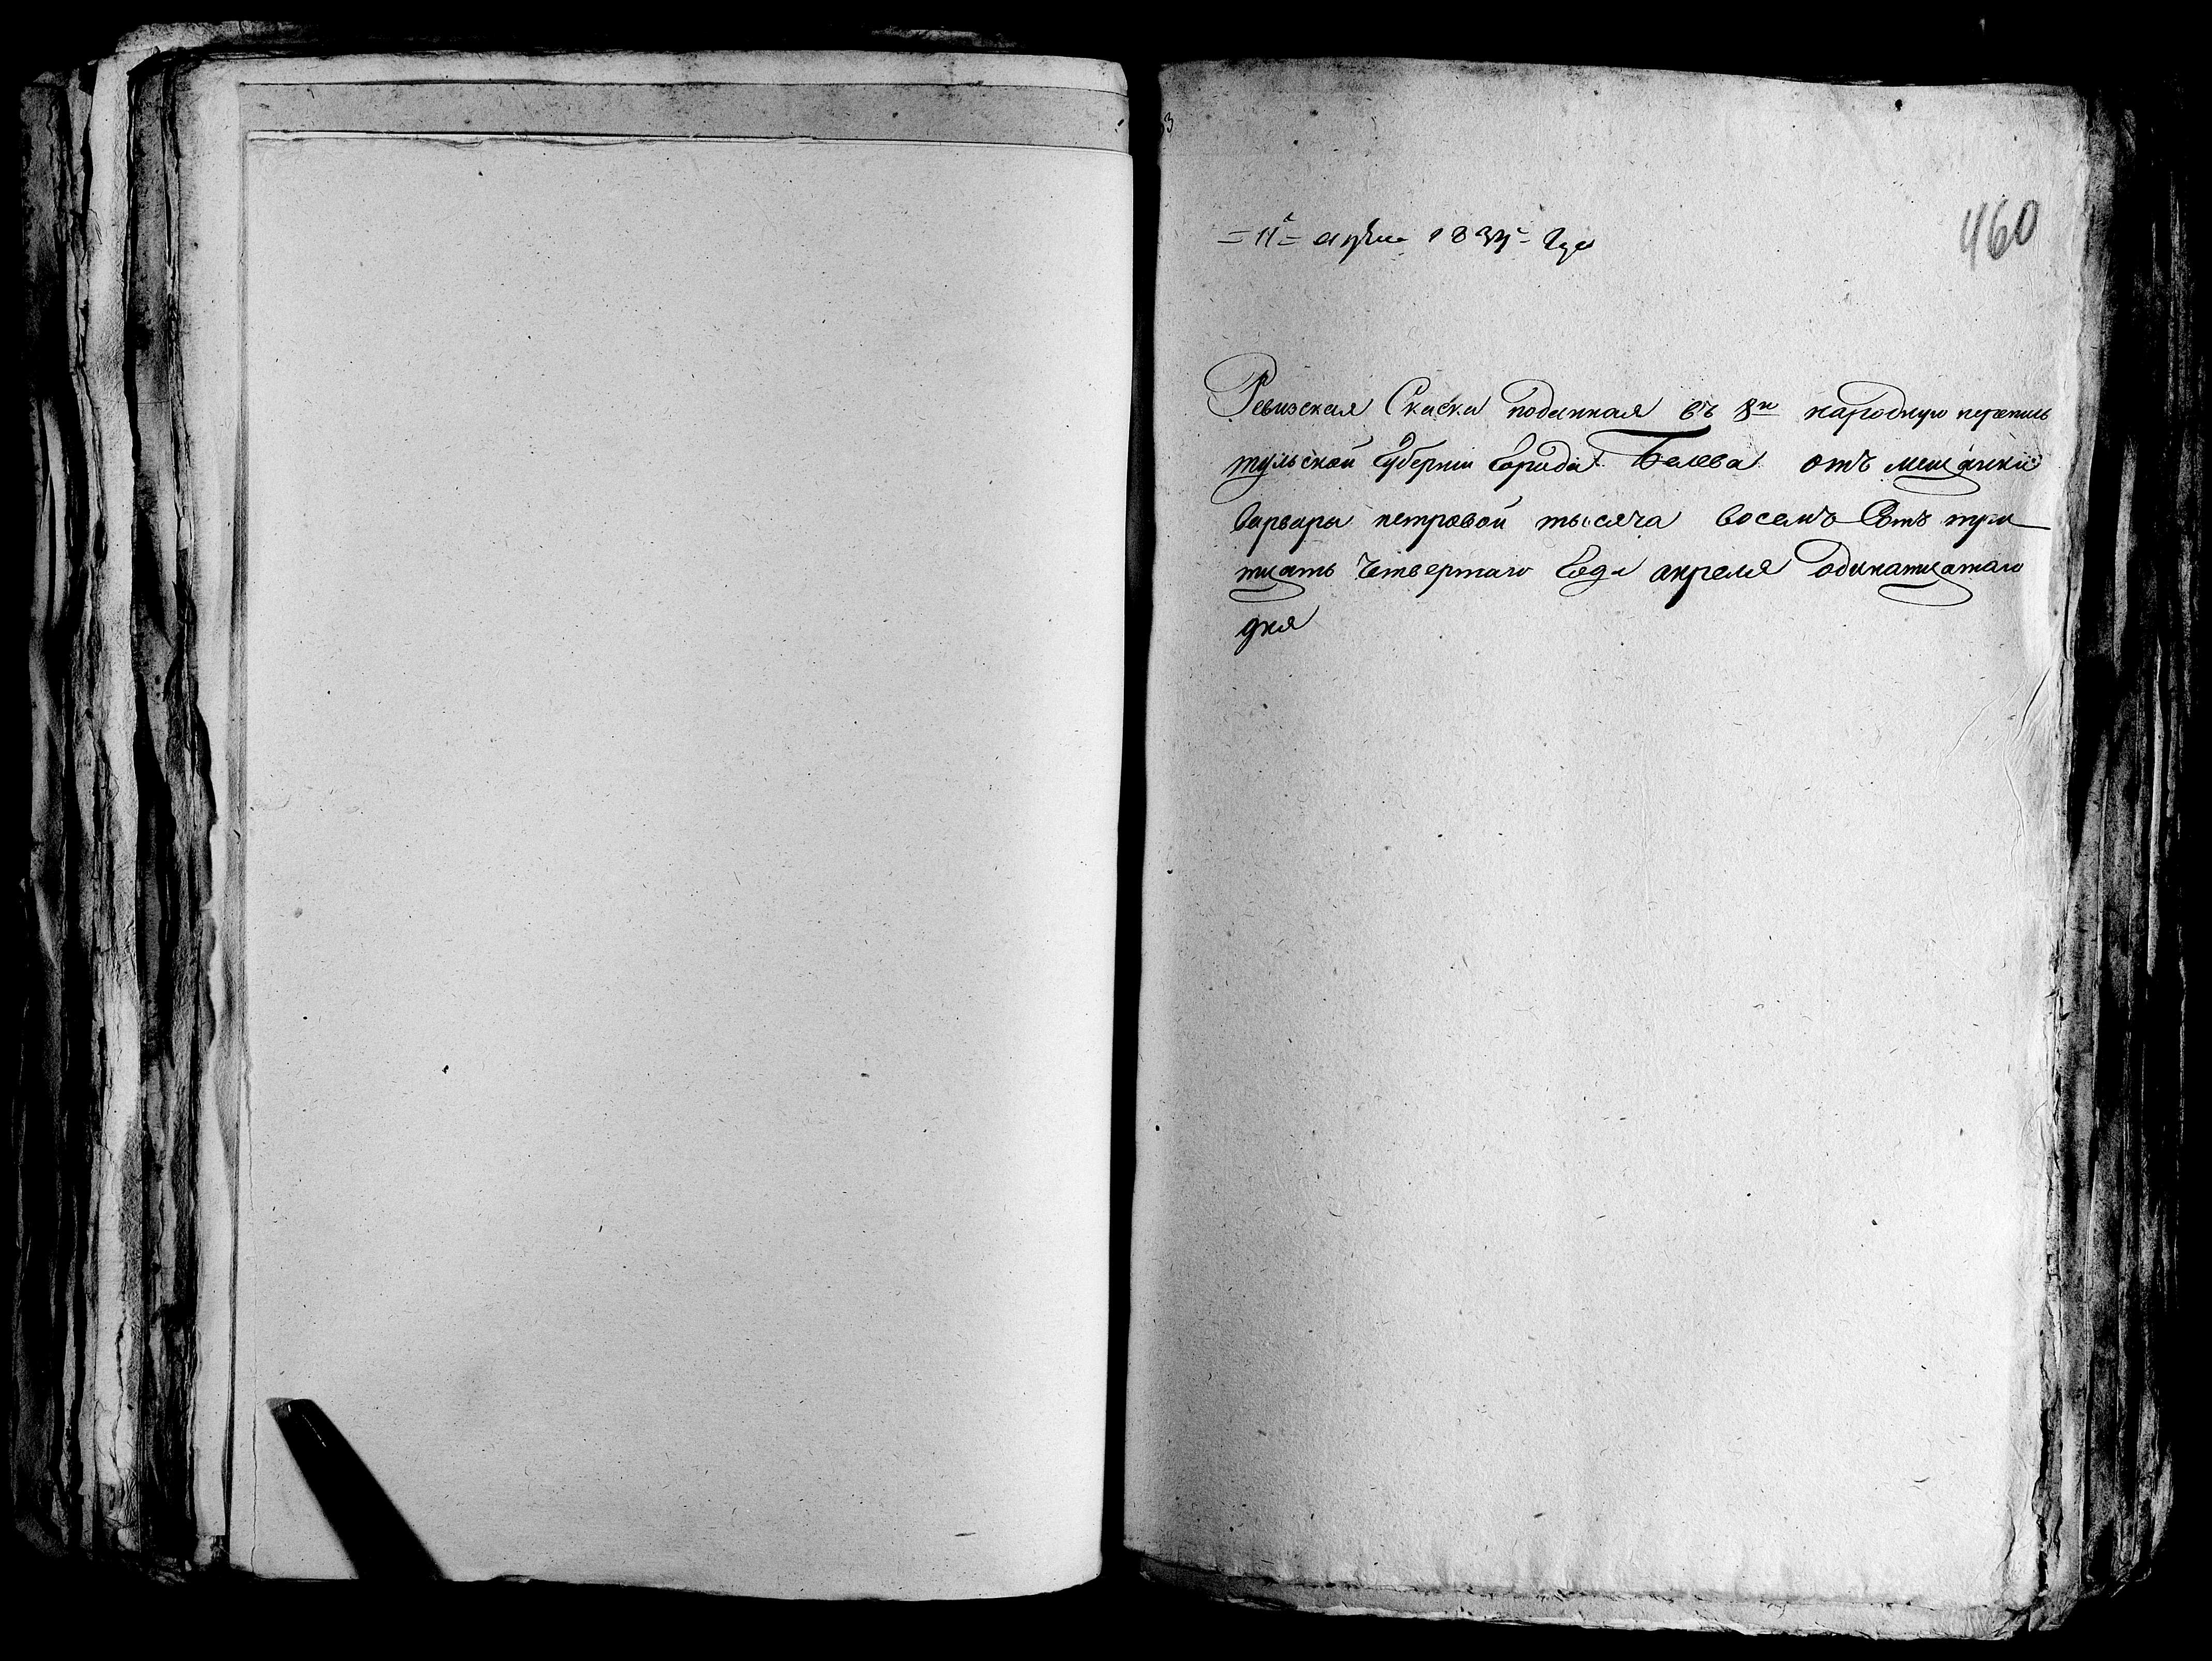 460
=11= апреля 1834= года
Ревизская Скаска поданная въ 8ю народную перепись
тульской губернии города Белева отъ мещанки
варвары петровой тысяча восемь Сотъ трит
тцать Четвертаго года апреля одинатцатаго
дня